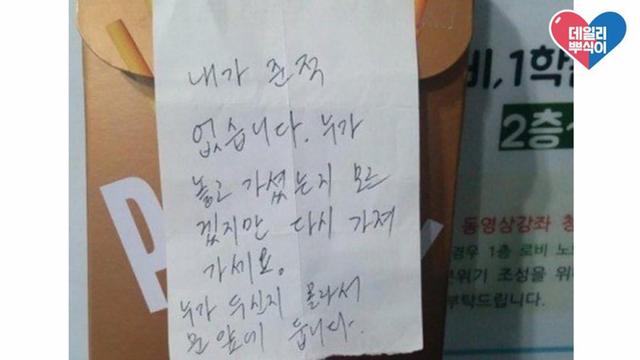 데일리
뿌식이
내가 준적
없습니다. 누가
놓고 가셨는지 모르
겠지만 다시 가져
가세요.
누가 두신지 몰라서
문 앞에 둡니다.
P
비, 1학
2층
동영상강좌
경우 1층 로비
분위기 조성을 위
부탁드립니다.